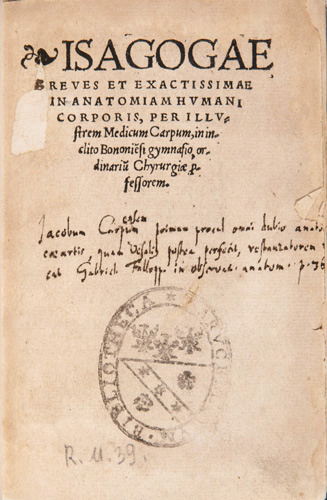 ISAGOGAE
BREVES ET EXACTISSIMAE
IN ANATOMIAM HVMANI
CORPORIS, PER ILLV-
strem Medicum Carpum, in in-
clito Bononiẽsi gymnasio, or-
dinariũ Chyrurgiæ ꝓ-
fessorem.
eosem
Jacobum Carpum primum procul omni dubio anato
artis, quam Vesalius postea perfecit, restauratorem
cat Gabriel Fallopp. in observat. anatom. p. 36
BIBLIOTHECA
R. U. 39.